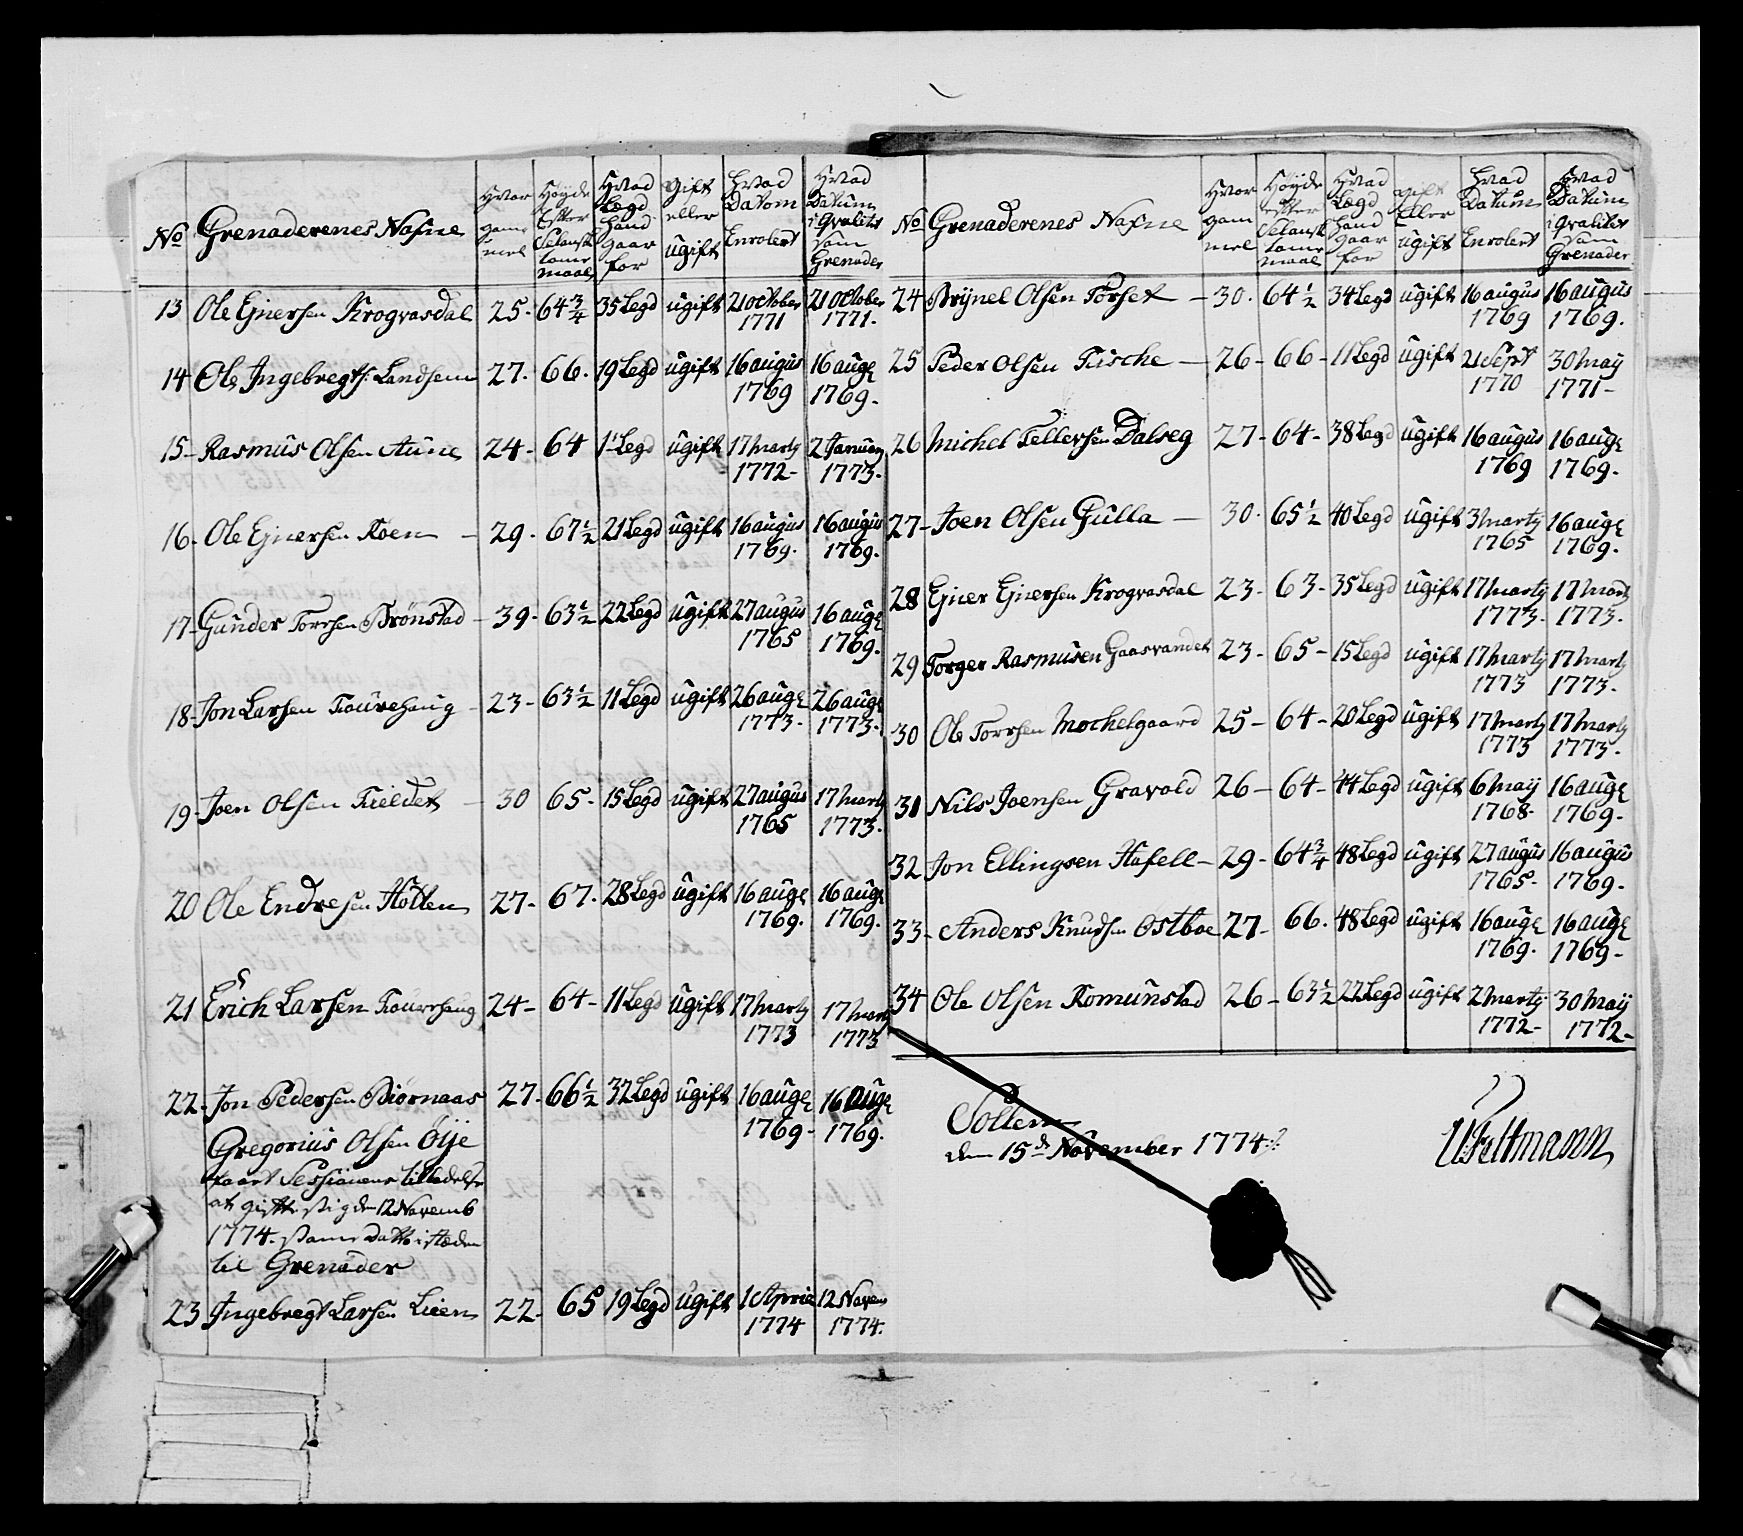 No Grenaderenes Nafne Hvor gammel Høyde Efter Selansk tomr maal Hvad Legd Hand gaar for Gift eller ugift Hvad Datom Enrolert Hvad Datum i Qvalitet som Grenader
13 Ole Ejnersen Krogvasdal 25. 64 3/4 35 Legd ugift 21 october 1771 21 October 1771.
14 Ole Ingebregts: Landsem 27. 66. 19 Legd ugift 16 augus 1769 16 augs 1769.
15 Rasmus Olsen Aune 24. 64 1 Legd ugift 17 Marty 1772 2 Januari 1773.
16. Ole Ejnersen Koen 29. 67 1/2 21 Legd ugift 16 augus 1769. 16 augus 1769.
17 Gunder Torrsen Brønstad 39. 63 1/2 22 Legd ugift 27 augus 1765 16 augs 1769.
18 Jon Larsen Tourehaug 23 63 1/2 11 Legd ugift 26 augs 1773. 26 augs 1773.
19. Joen Olsen Fieldet 30 65. 15 Legd ugift 27 augus 1765 17 Marty 1773.
20 Ole Endresen Holten 27. 67. 28 Legd ugift 16 augs 1769. 16 augs 1769.
21 Erich Larsen Tourehaug 24 64 11 Legd ugift 17 Marty 1773 17 Marty 1773
22. Jon Pedersen Biørnaas 27. 66 1/2 32 Legd ugift 16 augs 1769. 16 augs 1769.
Gregorius Olsen Øije
faaet Sessionens tilladelse
at gifte sig den 12 Novemb
1774. samme Datto i stæden
til Grenader
23 Ingebregt Larsen Lien 22. 65 19 Legd ugift 1 April 1774 12 Novem 1774.
No Grenaderenes Nafne Hvor gammel Høyde efter Selansk tomr maal Hvad Lægd Hand gaar for Gift Eller ugift Hvad Datum Enrolert Hvad Datum i Qvalitet som Grenader
24 Brynel Olsen Torset 30. 64 1/2 34 Legd ugift 16 augus 1769 16 augus 1769.
25 Peder Olsen Fische 26 66 11 Legd ugift 2 Sept 1770 30 May 1771
26 Michel Tellefsen Dalseg 27 64 38 Legd ugift 16 augus 1769 16 augs 1769.
27 Joen Olsen Gulla 30. 65 1/2 40 Legd ugift 3 Marty 1765 16 augs 1769.
28 Ejner Ejnersen Krogvasdal 23. 63 35 Legd ugift 17 Marty 1773. 17 Marty 1773.
29 Torger Rasmusen Gaasvandet 23 65 15 Legd ugift 17 Marty 1773 17 Marty 1773.
30 Ole Torrsen Mochelgaard 25 64 20 Legd ugift 17 Marty 1773 17 Marty 1773.
31 Nils Joensen Gravold 26 64 44 Legd ugift 6 May 1768. 16 augs 1769.
32 Jon Ellingsen Hafell 29 64 3/4 48 Legd ugift 27 augus 1765. 16 augus 1769.
33 Anders Knudsen Østboe 27 66. 48 Legd ugift 16 augs 1769. 16 augs 1769
34 Ole Olsen Romunstad 26 63 1/2 22 Legd ugift 2 Marty 1772 30 May 1772
Solem
den 15de November 1774
Feltmann